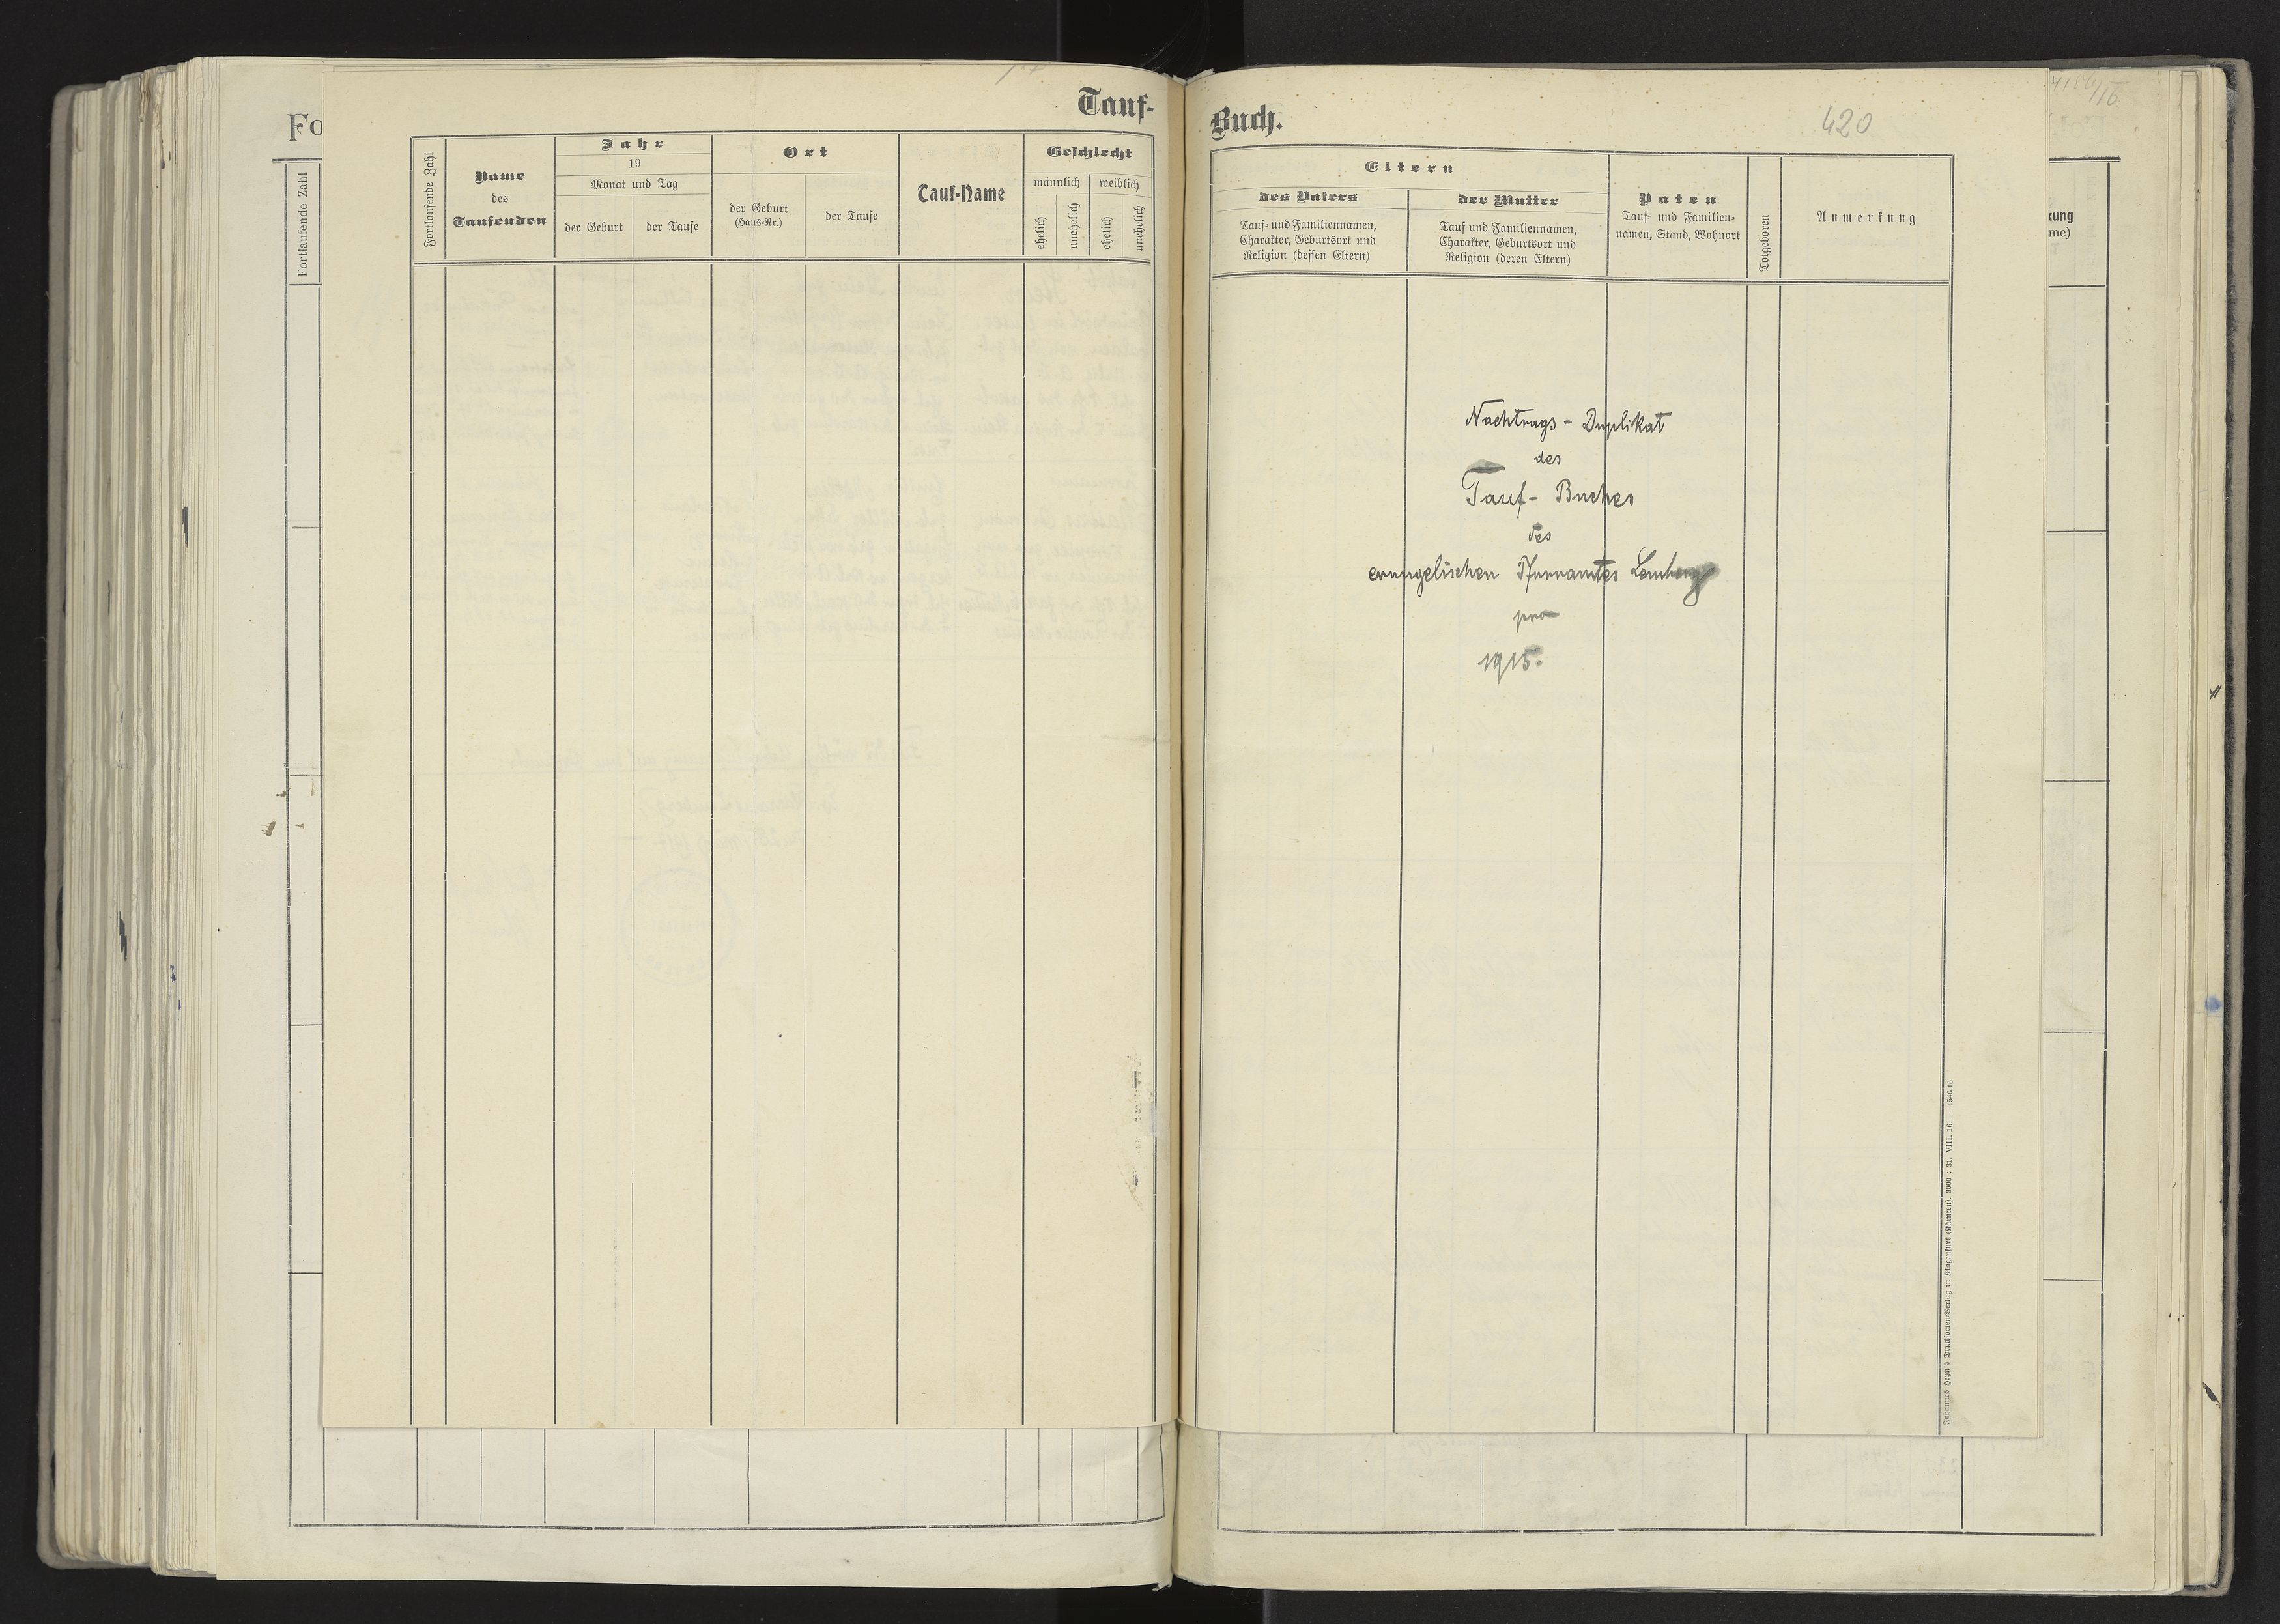 Fo
Fortlaufende Zahl
Tauf-
Fortlaufende Zahl
Name
des
Taufenden
Jahr
19
Monat und Tag
der Geburt
der Taufe
Ort
der Geburt
(Haus-Nr.)
der Taufe
Tauf-Name
Geschlecht
männlich
weiblich
ehelich
unehelich
ehelich
unehelich
Buch.
420
Eltern
des Vaters
Tauf- und Familiennamen,
Charakter, Geburtsort und
Religion (dessen Eltern)
der Mutter
Tauf und Familiennamen,
Charakter, Geburtsort und
Religion (deren Eltern)
Paten
Tauf- und Familien-
namen, Stand, Wohnort
Totgeboren
Anmerkung
kung
me)
Nachtrags - Duplikat
des
Tauf - Buches
des
evangelischen Pfarramtes Lemberg
pro
1915.
Johannes Heyn's Drucksorten-Verlag in Klagenfurt (Kärnten). 3000 : 31. VIII. 16. — 1546.16